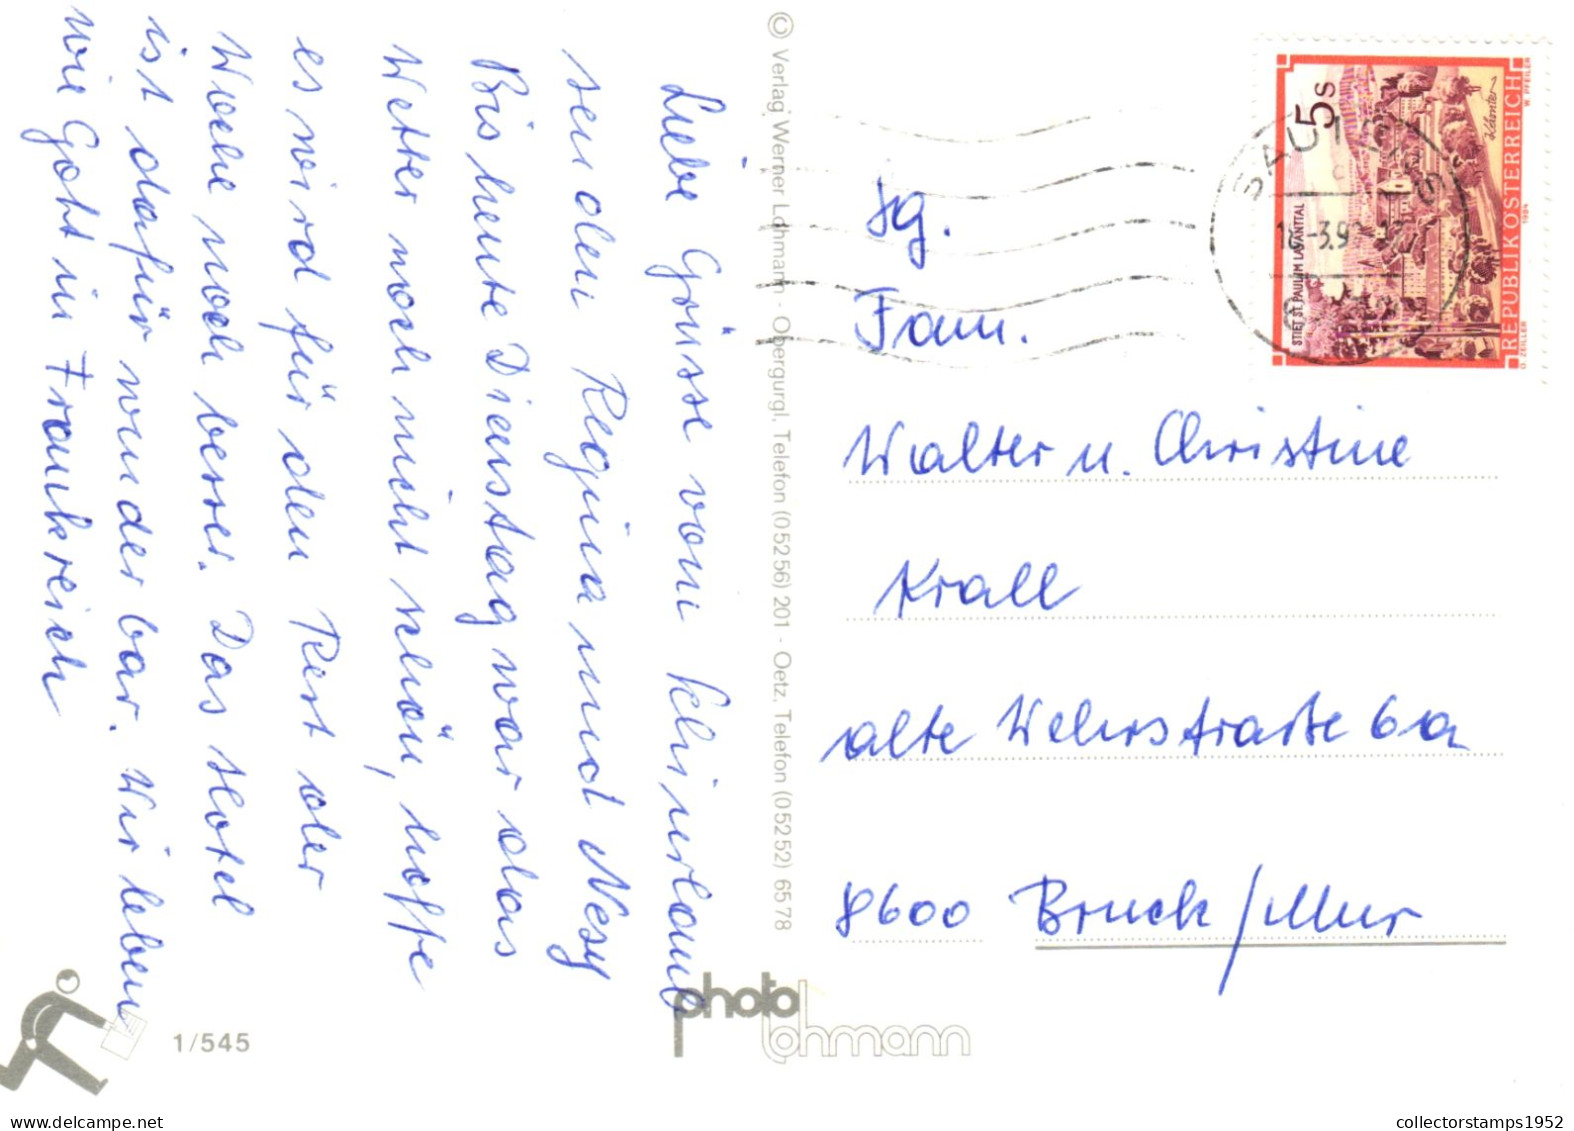 Liebe Grüsse vom Skiurlaub
senden Regina und Nesy
Bis heute Dienstag war das
Wetter noch nicht schön, hoffe
es wird für den Rest der
Woche noch besser. Das Hotel
ist dafür wunderbar. Wir leben
wie Gott in Frankreich
© Verlag Werner Lohmann - Obergurgl, Telefon (05256) 201 - Oetz, Telefon (05252) 6578
5 S
Kärnten
STIFT ST. PAUL IM LAVANTTAL
REPUBLIK ÖSTERREICH
1984
O. ZEILLER
W. PFEILER
-3.9
Fam.
Walter u. Christine
Krall
alte Wehrstraße 6a
8600 Bruck/Mur
photo
lohmann
1/545
collectorstamps1952